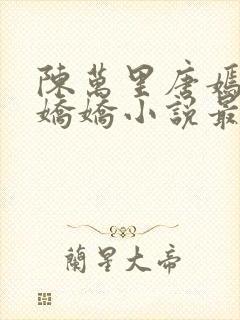 陳萬里唐嫣
嬌嬌小說最
蘭星大帝